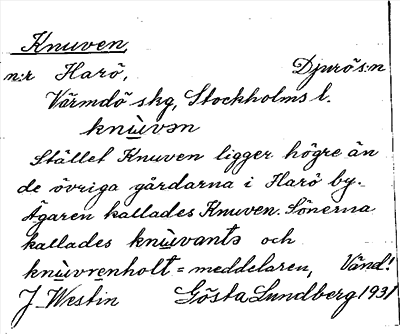 Knuven,
n:r Harö, Djurös:n
Värmdö skg, Stockholms l.
knùvən
Stället Knuven ligger högre än
de övriga gårdarna i Harö by.
Ägaren kallades Knuven. Sönerna
kallades knùvants och
knùvrenholt = meddelaren, Vänd!
J. Westin Gösta Lundberg 1931